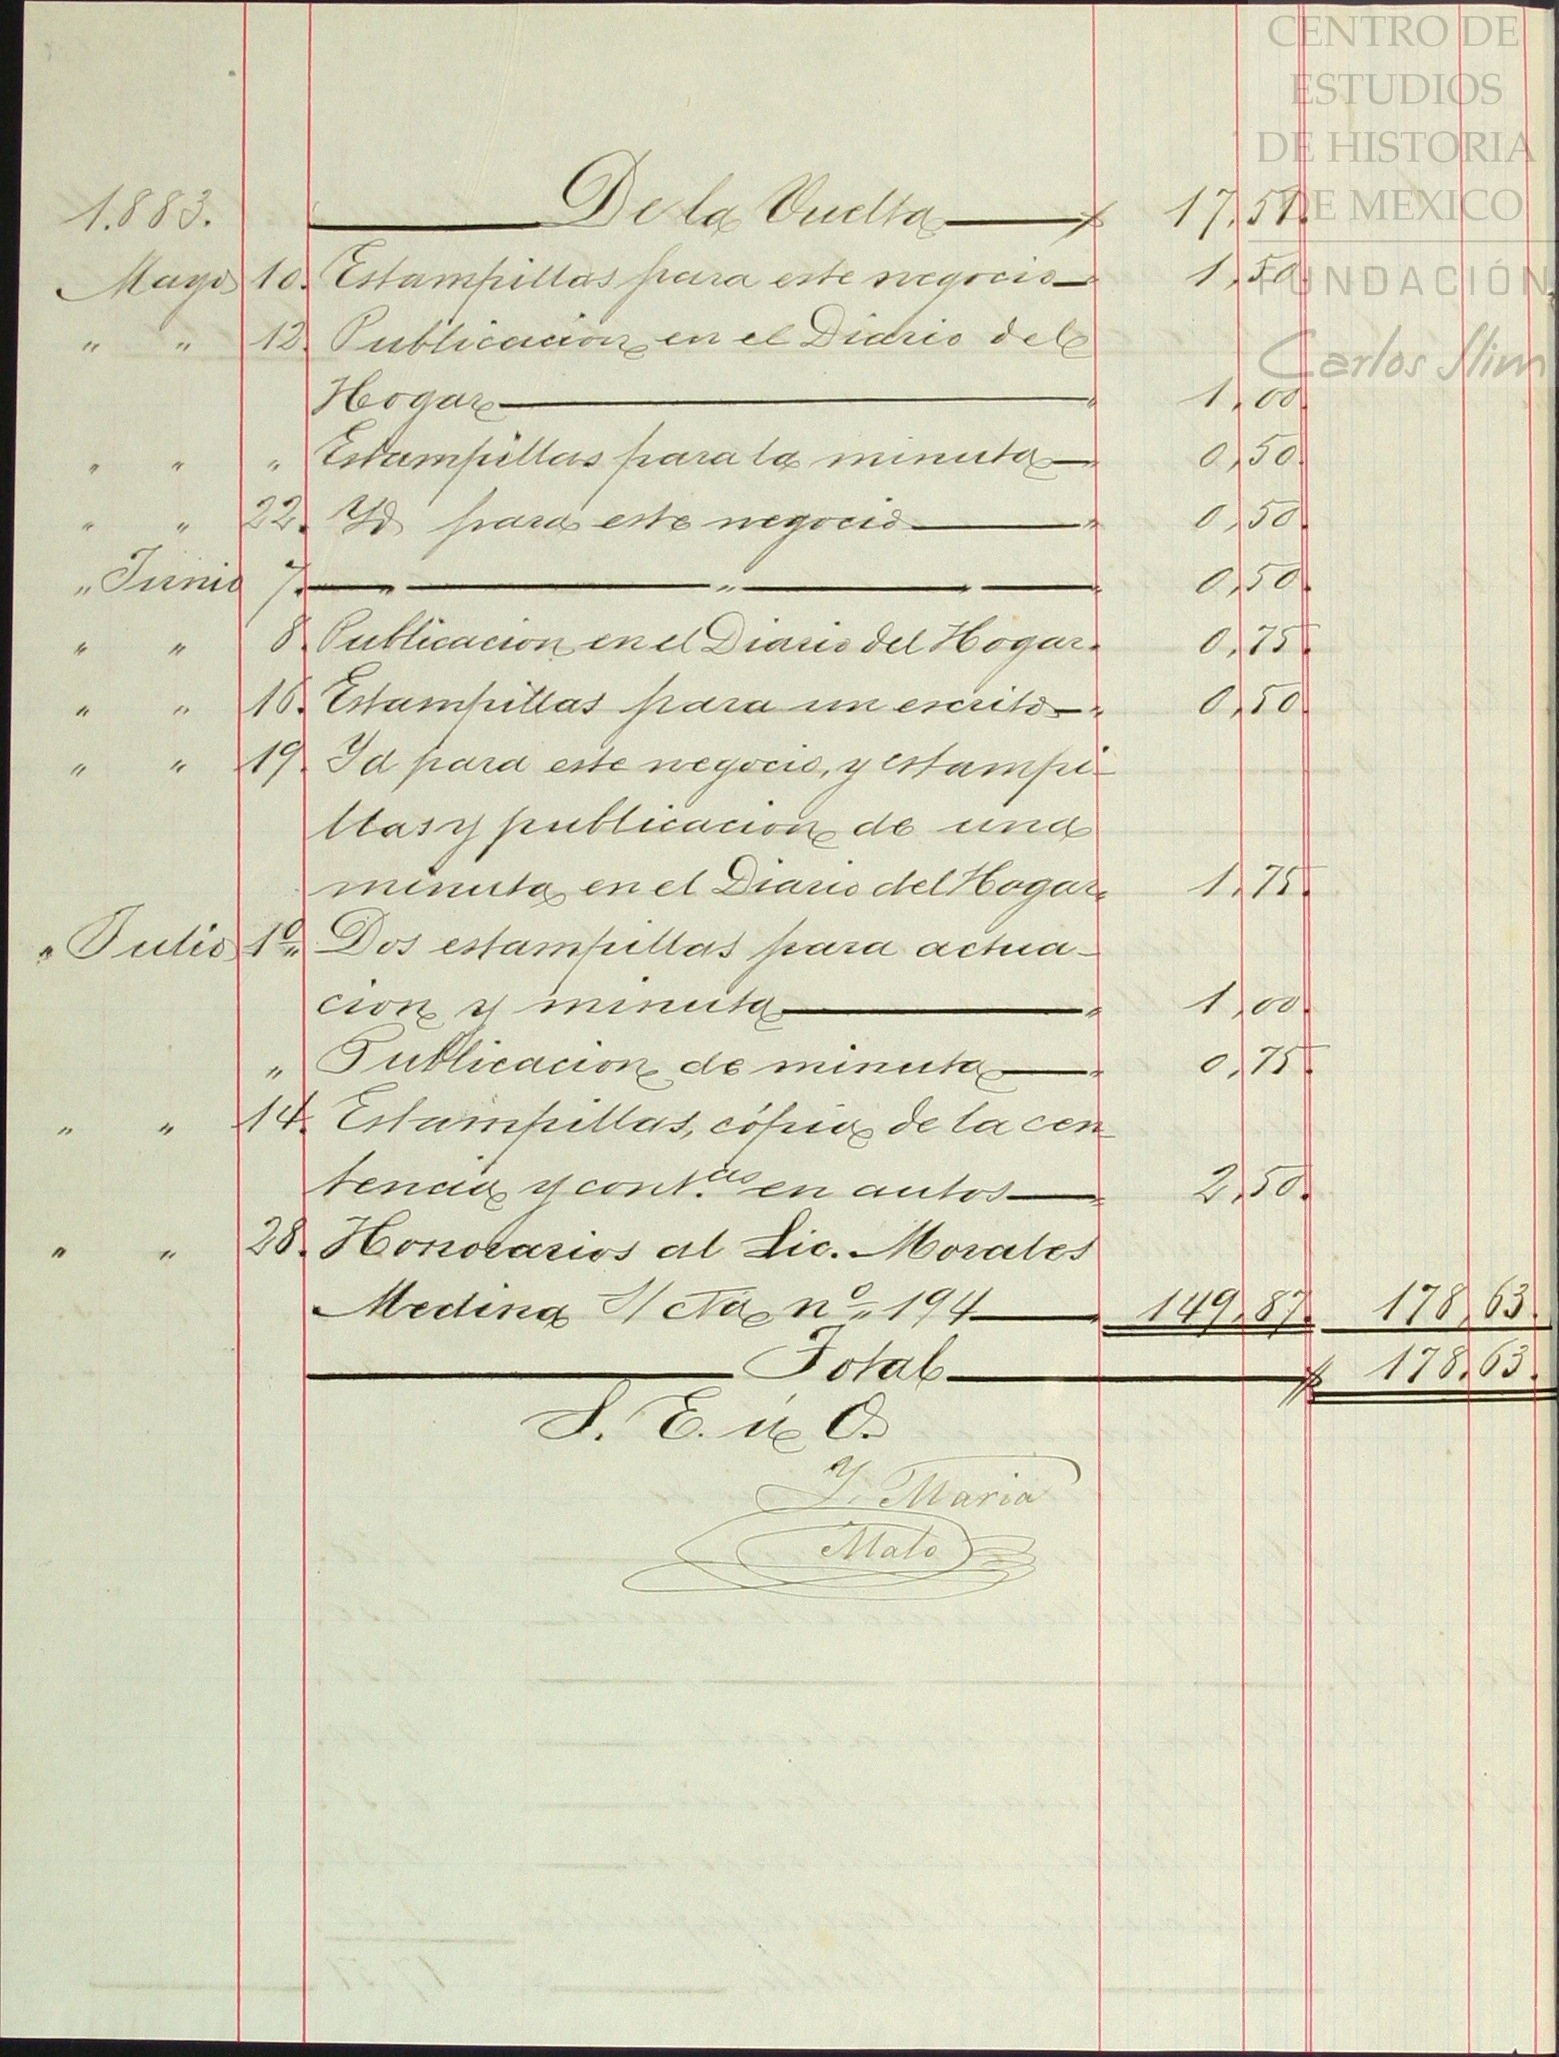 CENTRO DE
ESTUDIOS
DE HISTORIA
DE MEXICO
FUNDACIÓN
Carlos Slim
1.883. De la Vuelta 17,51.
Mayo 10. Estampillas para este negocio 1,50.
" " 12. Publicacion en el Diario del
Hogar " 1,00.
" " " Estampillas para la minuta " 0,50.
" " 22. Yd para este negocio " 0,50.
" Junio 7. " " " 0,50.
" " 8. Publicacion en el Diario del Hogar " 0,75.
" " 16. Estampillas para un escrito " 0,50.
" " 19. Yd para este negocio, y estampi-
llas y publicacion de una
minuta en el Diario del Hogar " 1,75.
" Julio 1º Dos estampillas para actua-
cion y minuta " 1,00.
" Publicacion de minuta " 0,75.
" " 14. Estampillas, cópia de la cen
tencia y cont.as en autos " 2,50.
" " 28. Honorarios al Lic. Morales
Medina S/ cta nº 194 " 149,87. 178,63.
Total $ 178,63.
S. E. ú O.
Y. Maria
Mato